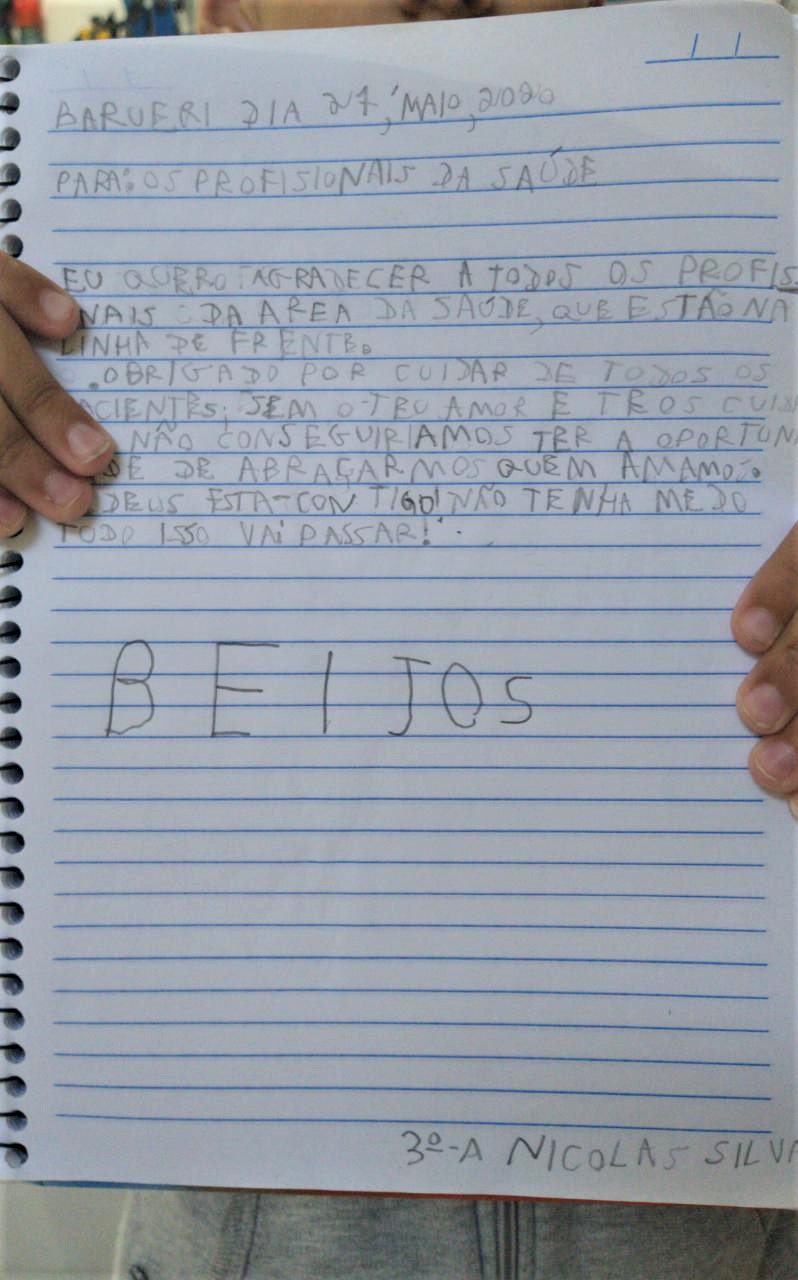 BARUERI DIA 27, MAIO, 2020
PARA: OS PROFISIONAIS DA SAÚDE
EU QUERO AGRADECER A TODOS OS PROFIS
NAIS DA AREA DA SAÚDE, QUE ESTÃO NA
LINHA DE FRENTE.
.OBRIGADO POR CUIDAR DE TODOS OS
ACIENTES; SEM O TEU AMOR E TEOS CUIDA
NÃO CONSEGUIRIAMOS TER A OPORTUN
DE DE ABRAÇARMOS QUEM AMAMOS.
DEUS ESTA-CONTIGO! NÃO TENHA MEDO
TUDO ISSO VAI PASSAR!
BEIJOS
3º-A NICOLAS SILVA